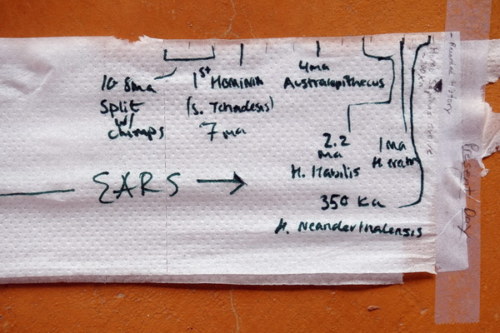 10-8ma
Split
w/
chimps
1st Hominin
(S. Tchadesis)
7ma
4ma
Australopithecus
2.2
ma
H. Habilis
1ma
H erectus
350 Ka
H. Neanderthalensis
EARS →
Present Day